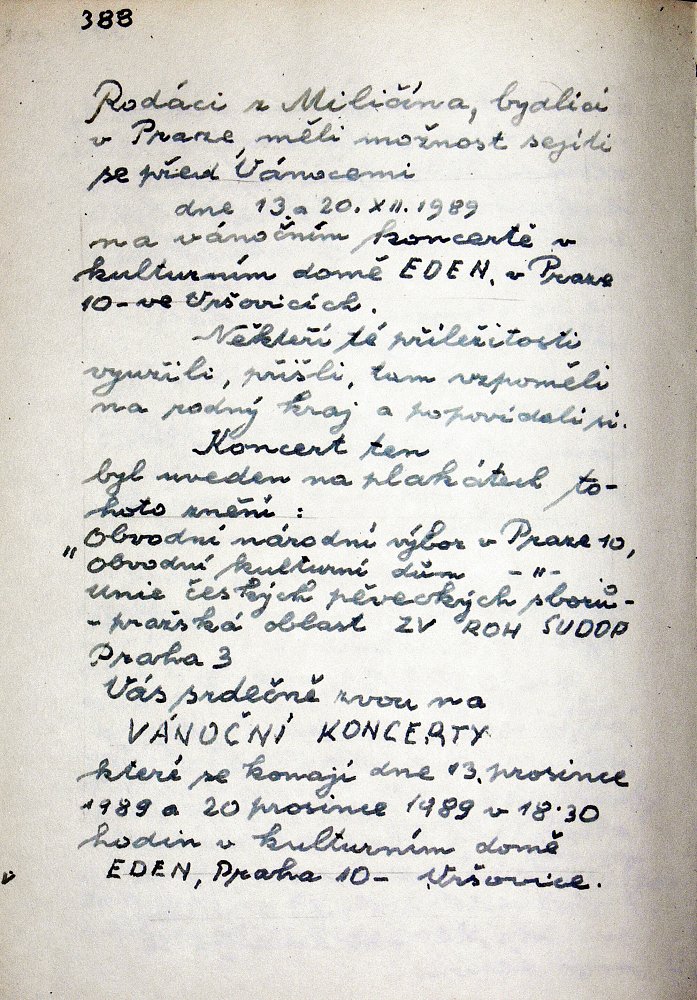 388
Rodáci z Miličína, bydlící
v Praze, měli možnost sejíti
se před Vánocemi
dne 13. a 20. XII. 1989
na vánočním koncertě v
kulturním domě EDEN, v Praze
10-ve Vršovicích.
Někteří té příležitosti
využili, přišli, tam vzpoměli
na rodný kraj a popovídali si.
Koncert ten
byl uveden na plakátech to-
hoto znění :
„Obvodní národní výbor v Praze 10,
Obvodní kulturní dům -"-
Unie českých pěveckých sborů-
- pražská oblast ZV ROH SUDOP
Praha 3
Vás srdečně zvou na
VÁNOČNÍ KONCERTY
které se konají dne 13. prosince
1989 a 20 prosince 1989 v 18·30
hodin v kulturním domě
EDEN, Praha 10- Vršovice.